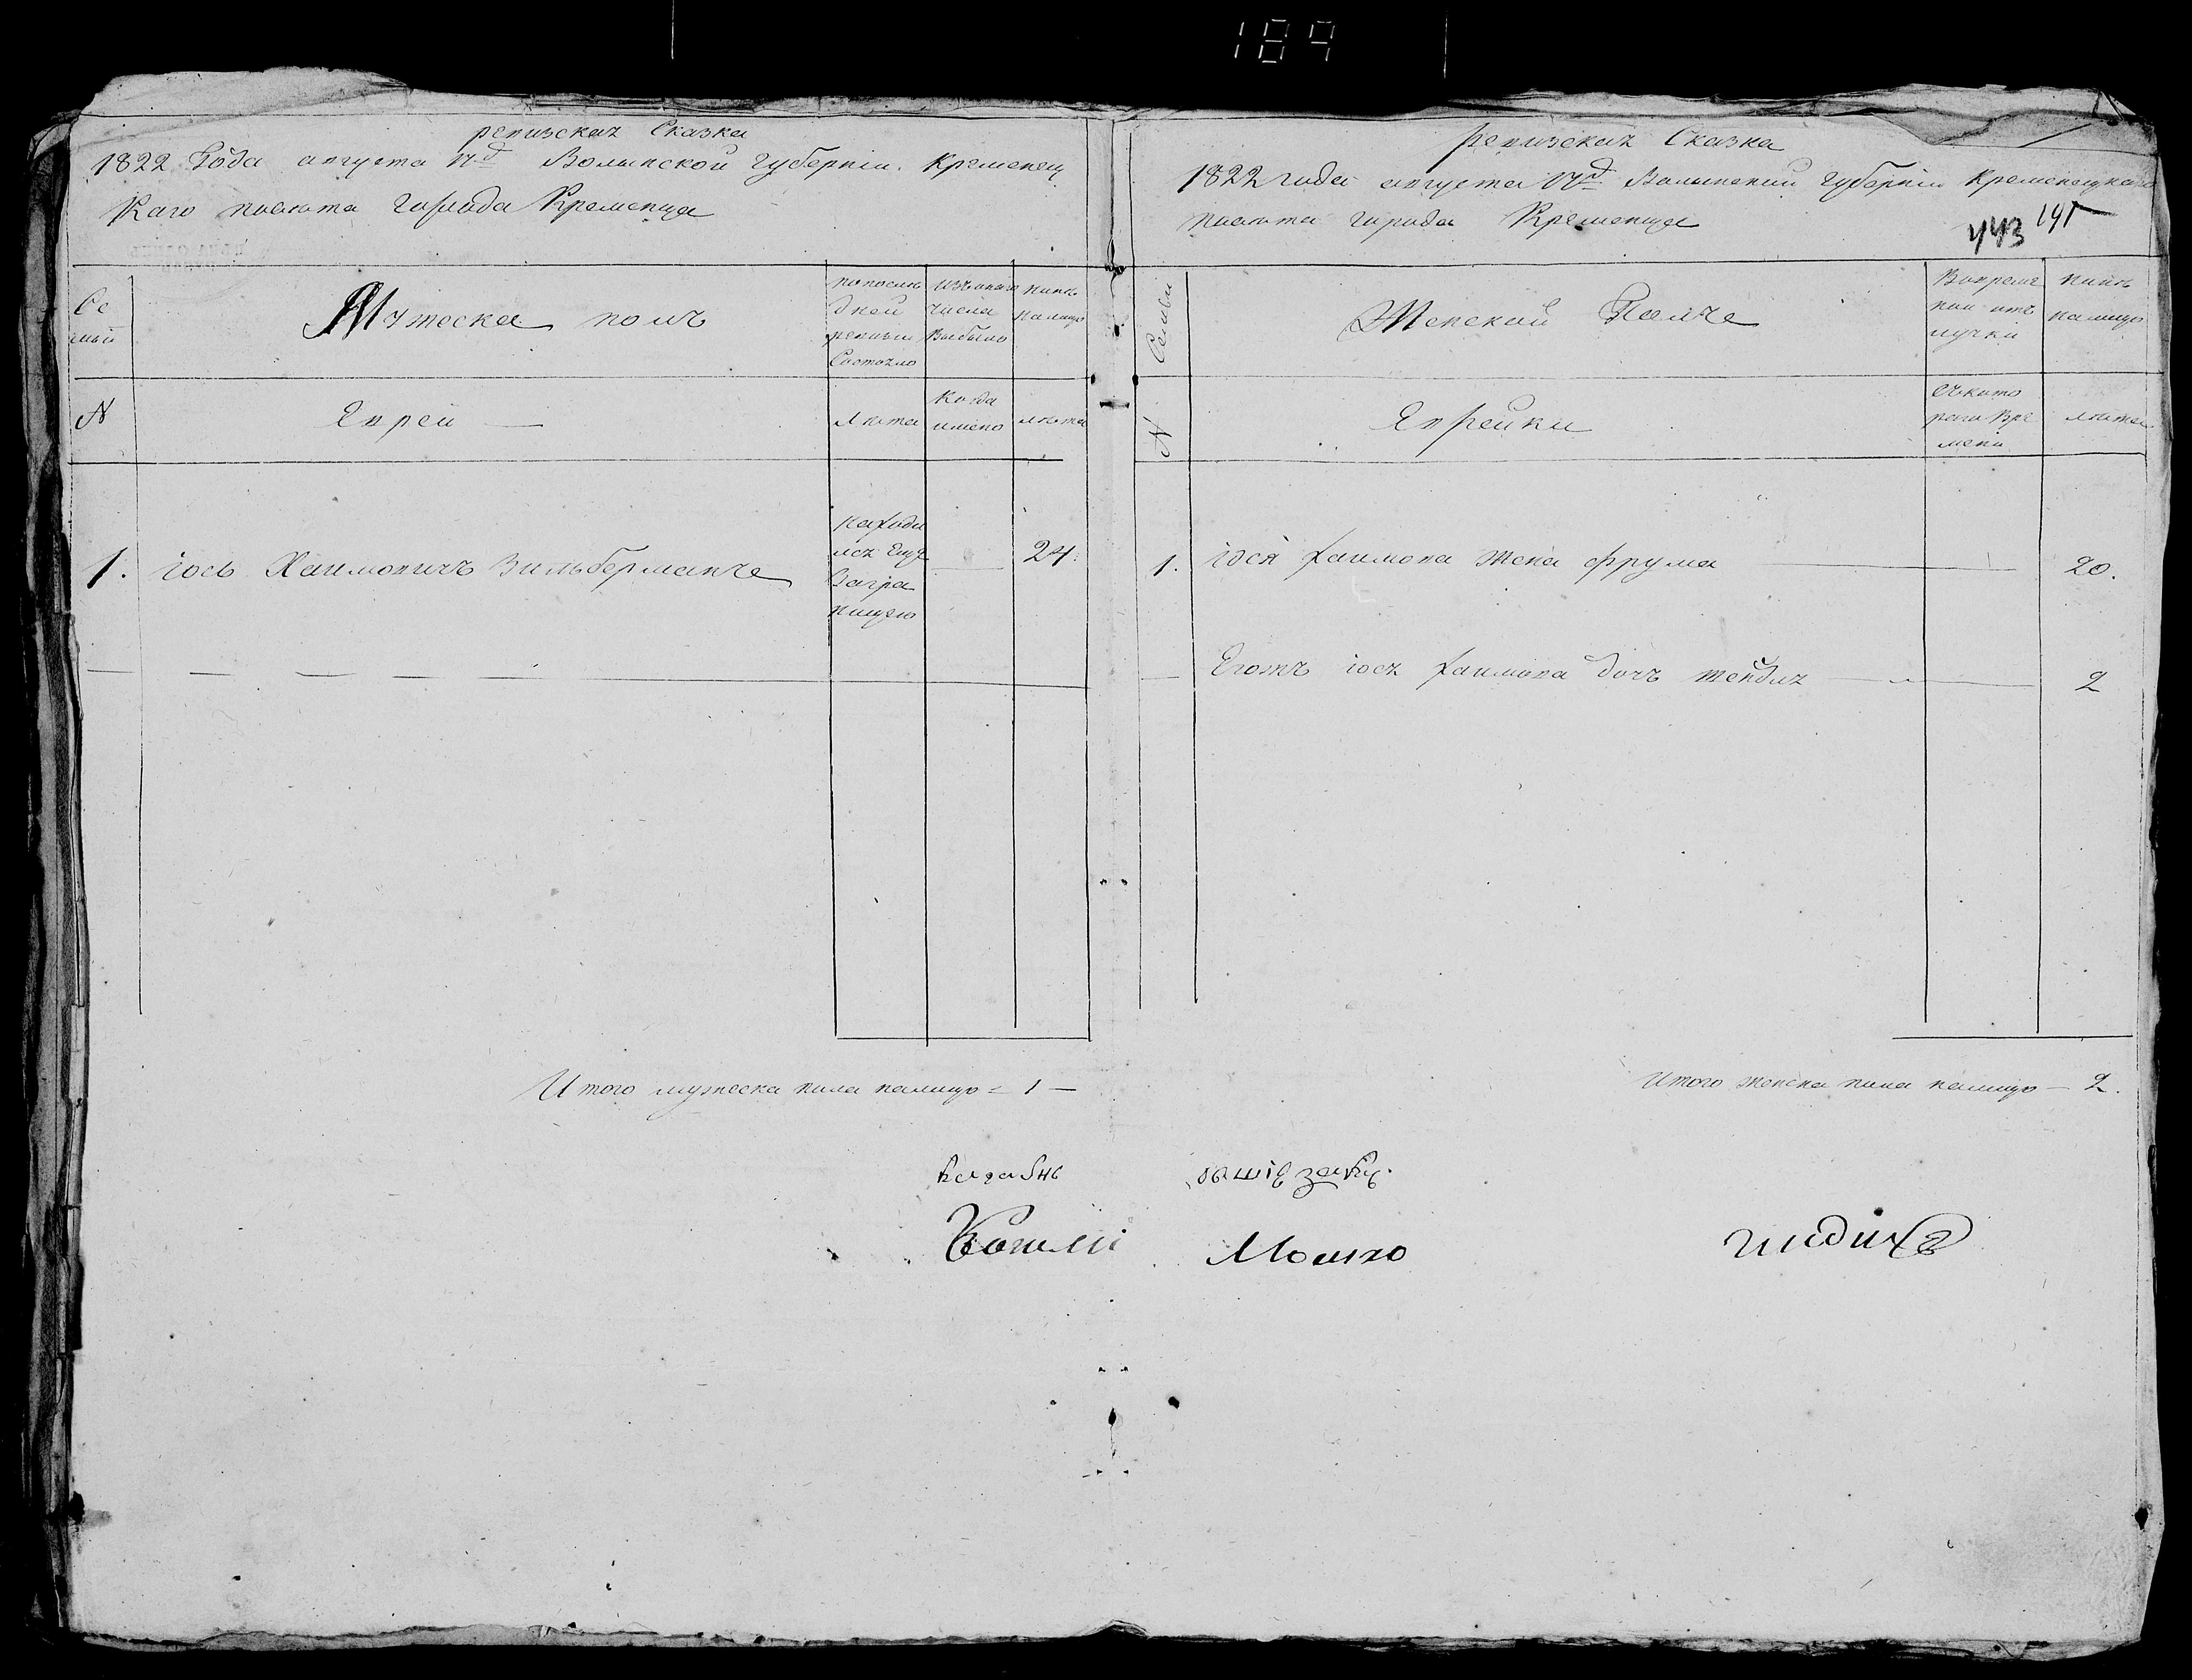 189
ревизская Сказка
1822 Года августа 17д Волынской губернии. Кременец
Каго повѣта города Кременца
Се
мьи
Мужеска полъ
попослѣ
дней
ревизіи
Состояло
изъ онаго
числа
Выбыло
нынѣ
налицо
N
Евреи —
Лѣта
Когда
имено
лѣта
1. іось Хаимовичъ Зильберманъ
находи
лся Еще
Загра
ницею
24.
Итого мужеска пола налицо = 1 —
Ревизская Сказка
1822 года августа 17д Волынской губерніи Кременецкаго
повѣта города Кременца
443
Семьи
Женской Полъ
Вовреме
ной отъ
лучки
нынѣ
налицо
N
Еврейки
Съкото
раго Вре
мени
лѣта
1. іося хаимова жена фрума 20.
Егожъ іося хаимова дочь жейдля 2
Итого женска пола налицо — 2.
Мошко